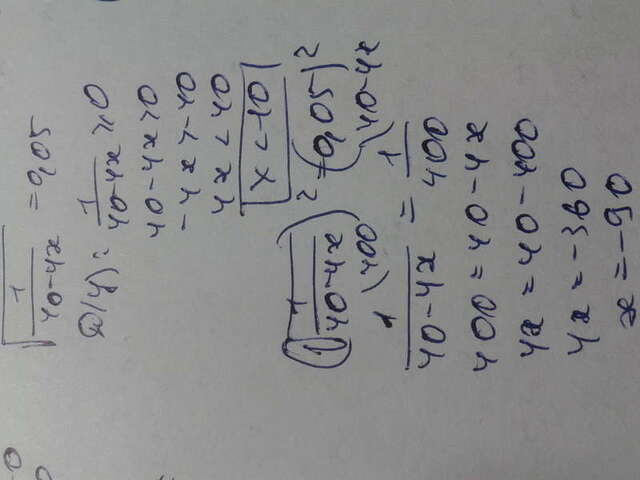 √(1/(40-4x)) = 0,05
D(y) = 1/(40-4x) ≥ 0
40-4x>0
-4x>-40
4x<40
x<10
(√(1/(40-4x)))² = (0,05)²
1\400/(40-4x) = 1\40-4x/400
400 = 40-4x
4x = 40-400
4x = -360
x = -90